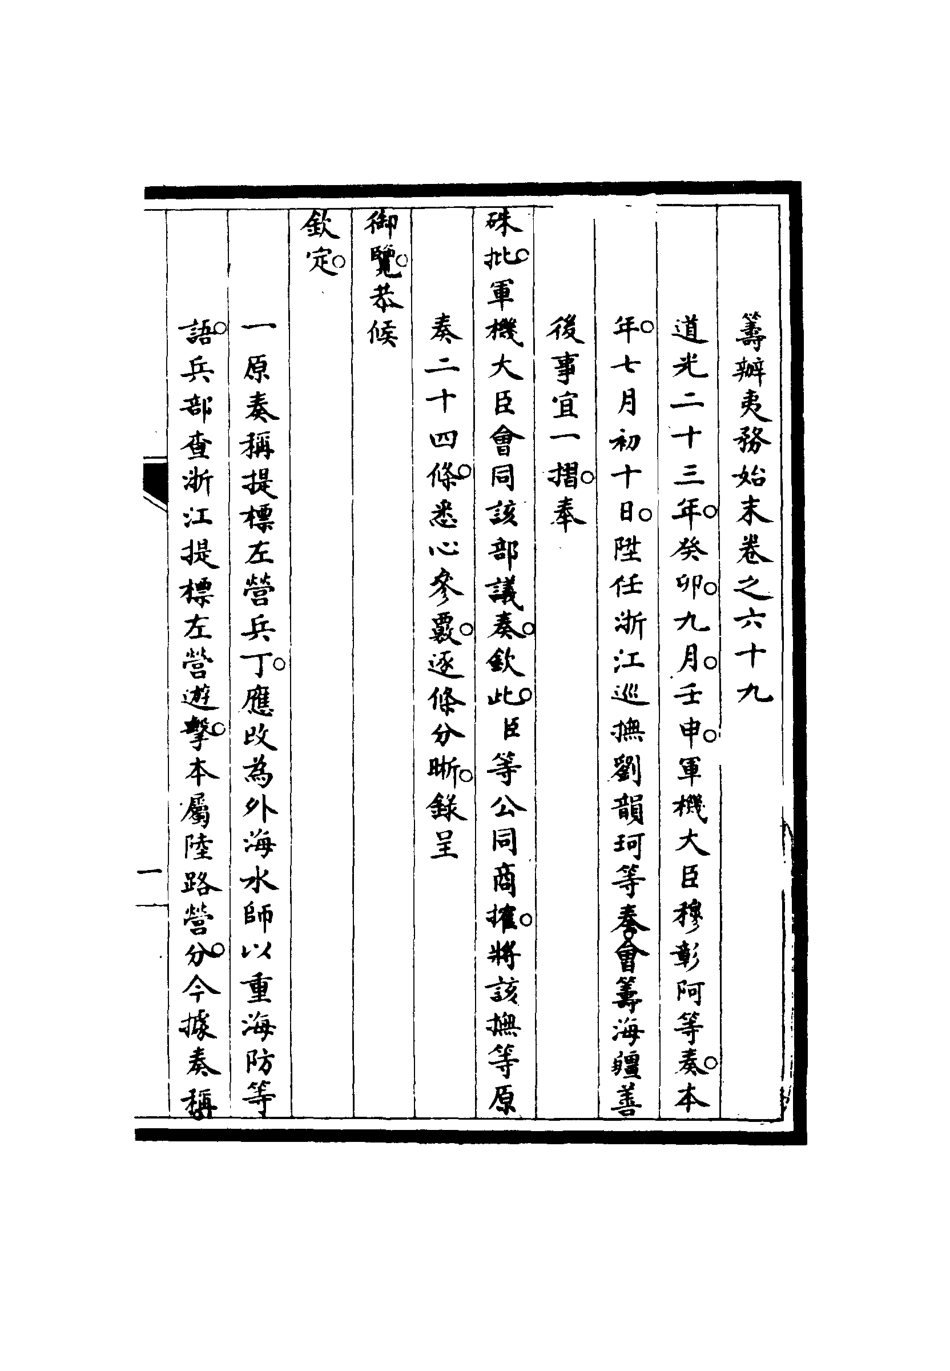 籌辦夷務始末卷之六十九
道光二十三年。癸卯。九月。壬申。軍機大臣穆彰阿等奏。本
年。七月初十日。陞任浙江巡撫劉韻珂等奏。會籌海疆善
後事宜一摺。奉
硃批。軍機大臣會同該部議奏。欽此。臣等公同商搉。將該撫等原
奏二十四條。悉心參覈。逐條分晰。錄呈
御覽。恭候
欽定。
一原奏稱提標左營兵丁。應改為外海水師以重海防等
語。兵部查浙江提標左營遊擊。本屬陸路營分。今據奏稱
一